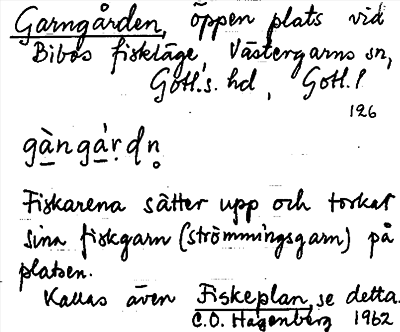 Garngården, öppen plats vid
Bibos fiskläge, Västergarns sn,
Gotl. s. hd, Gotl. l
126
gàngárdn
Fiskarena sätter upp och torkar
sina fiskgarn (strömmingsgarn) på
platsen.
Kallas även Fiskeplan, se detta.
C.O. Hagenberg 1962